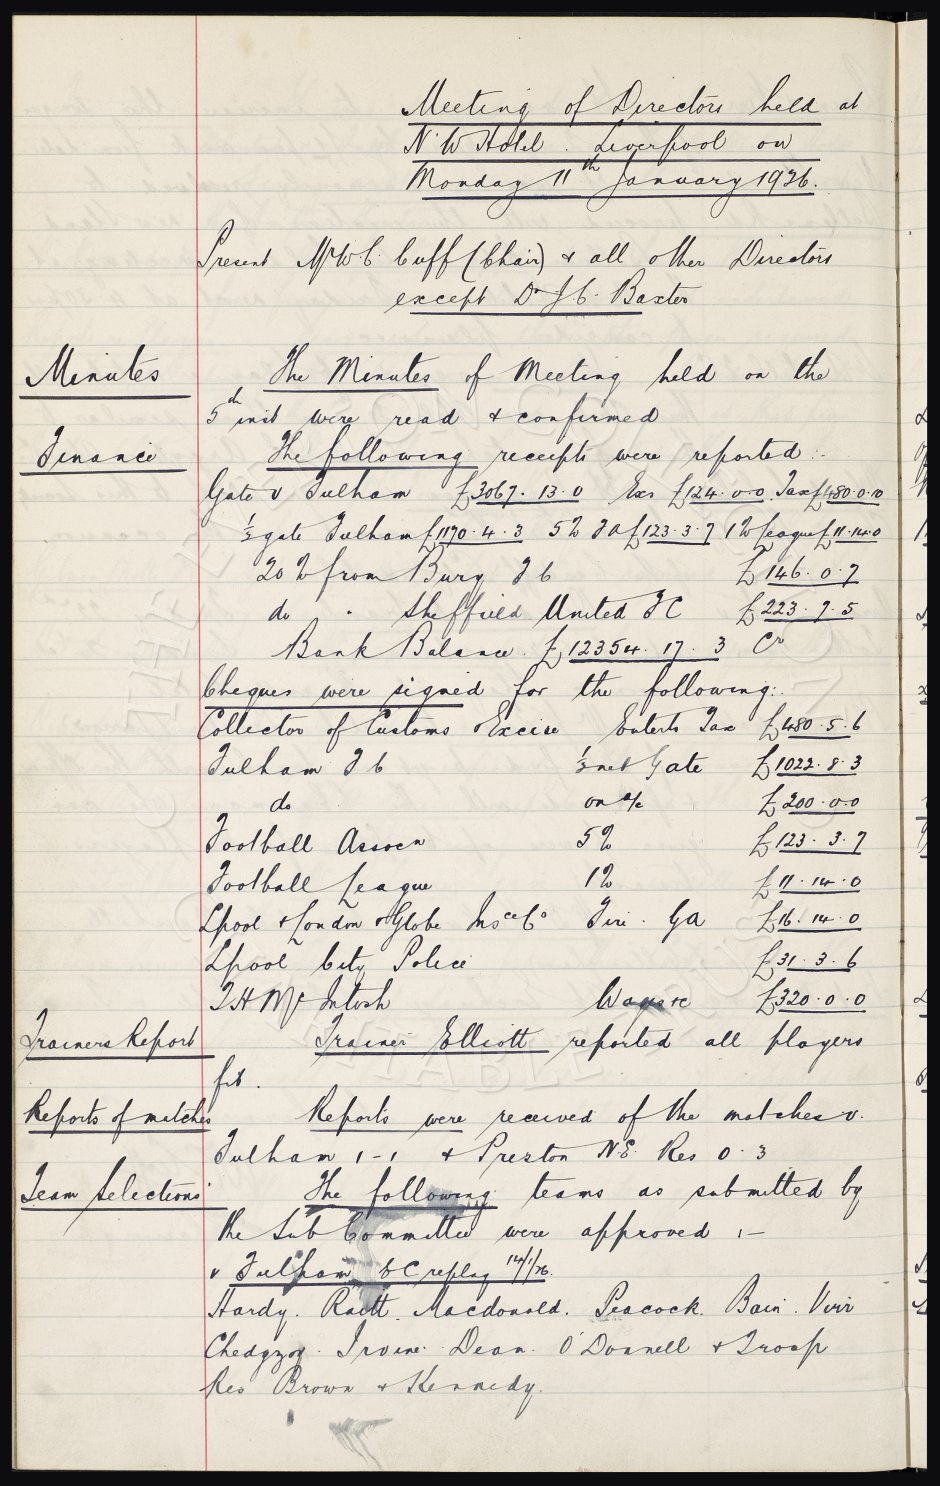 Meeting of Directors held at
N.W Hotel. Liverpool on
Monday 11th January 1926.
Present Mr W C. Cuff (Chair) & all other Directors
except Dr J C. Baxter
Minutes
The Minutes of Meeting held on the
5th inst were read & confirmed
Finance
The following receipts were reported:-
Gate v Fulham £3067. 13. 0 Exs £124. 0.0. Tax £480.0.10
½ gate Fulham £1170. 4. 3 5% FA £123. 3. 7 1% League £11.14.0
20% from Bury F C £146. 0. 7
do . Sheffield United F C £223. 7. 5
Bank Balance. £12354. 17. 3 Cr
Cheques were signed for the following:-
Collector of Customs & Excise Enterts Tax £480. 5. 6
Fulham F C ½ net Gate £1022. 8. 3
do on a/c £200. 0. 0
Football Assocn 5% £123. 3. 7
Football League 1% £11. 14. 0
Lpool & London & Globe Insce Co Fire. GA £16. 14. 0
Lpool City Police £31. 3. 6
T H McIntosh Wages &c £320. 0. 0
Trainers Report
Trainer Elliott reported all players
fit.
Reports of matches
Reports were received of the matches v.
Fulham 1-1 & Preston N.E. Res 0. 3
Team Selections
The following teams as submitted by
the Sub Committee were approved :-
v Fulham E C replay 14/1/26.
Hardy. Raitt. Macdonald. Peacock. Bain. Virr
Chedgzoy. Irvine. Dean. O'Donnell & Troup
Res Brown & Kennedy.